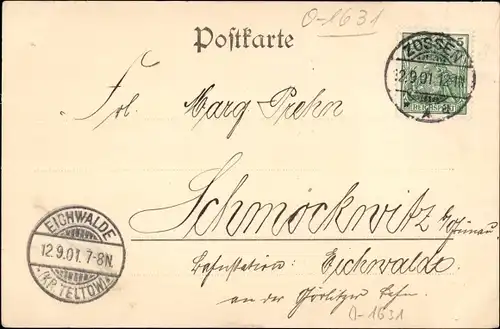 O-1631
Postkarte
5
REICHSPOST
ZOSSEN
12.9.01. 1-2N.
Frl. Marg. Prehn
Schmöckwitz b/Grünau
Bahnstation: Eichwalde
an der Görlitzer Bahn
EICHWALDE
12.9.01. 7-8N.
*(KR. TELTOW)*
O-1631